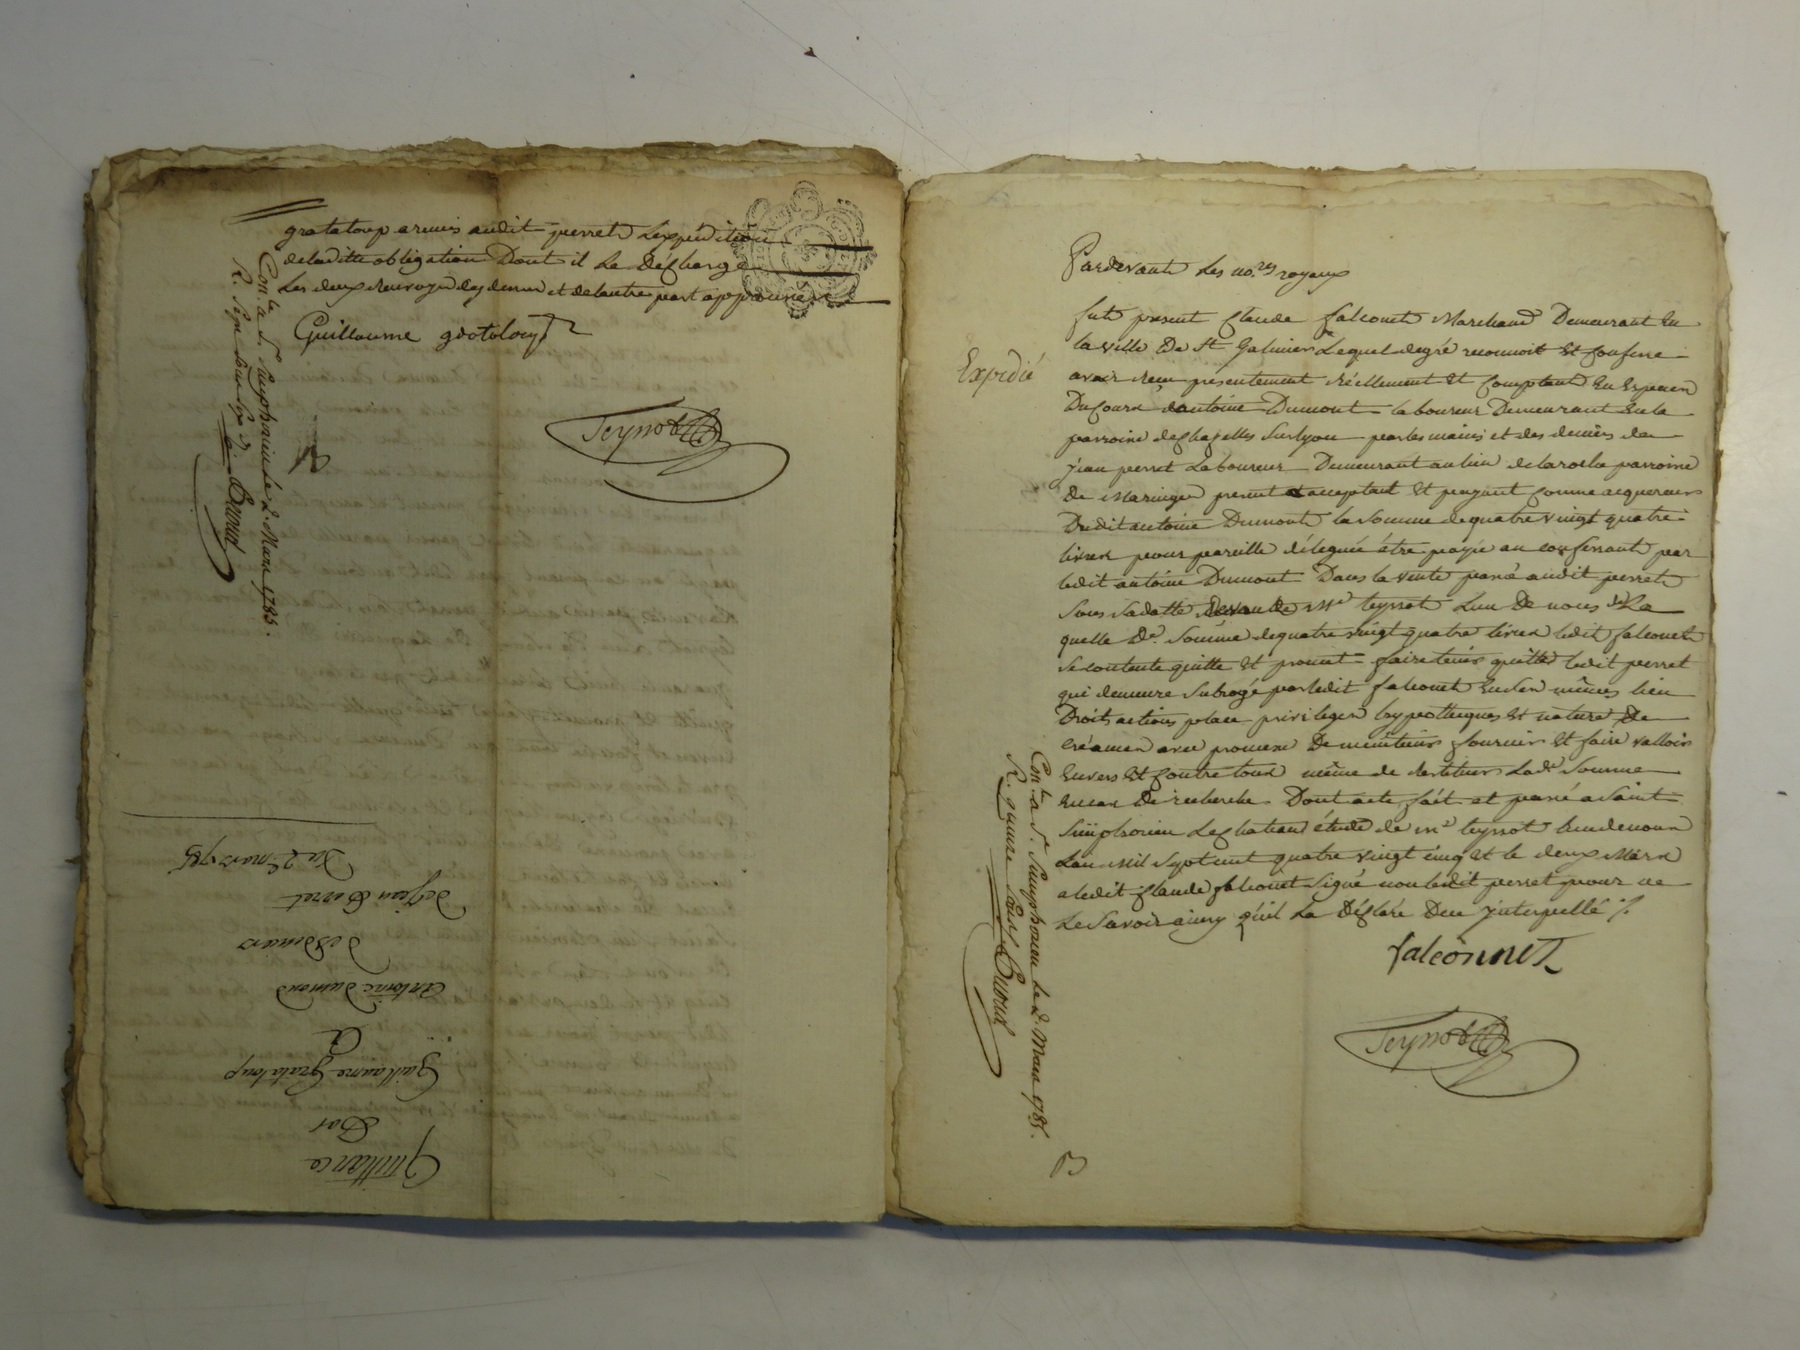 grataloup a remis audit perret Lexpédition
deladitte obligation Dont il Le décharge
Les deux renvoys des derrier et delautre part approuvés
Guillaume grotolouz
Teynot
Con.lé a S.t Simphorien le 2. Mars 1785.
R. Sept Duroud
Quittance
Par
Guillaume Grataloup
A
Antoine dumond
de Jean Perret
Du 2 mars 1785
Pardevant Les no.res royaux
fut present Claude falconet Marchand Demeurant En
la ville De St Galmier Lequel degré reconnoit Et Confesse
Expedié
avoir recu presentement réellement Et Comptant En Especes
Du Cours d'antoine Dumont laboureur Demeurant En la
parroisse de Chazelles Sur lyon par les mains et des deniers de
jean perret Laboureur Demeurant au lieu de laroche parroisse
de Maringes present et acceptant Et payant Comme acquereur
Dudit antoine Dumont la Somme de quatre vingt quatre
livres pour pareille déleguée être payée au confessant par
ledit antoine Dumont Dans la vente passé audit perret
Sous Sadatte devant Me teynot L'un De nous De La
quelle De. Somme de quatre vingt quatre livres ledit falconet
Se contente quitte Et promet faire tenir quitte ledit perret
qui demeure Subrogé par ledit falconet En Ses mêmes lieu
Droits actions place privileges hypotheques Et nature De
Créances avec promesse De maintenir fournir Et faire valloir
Envers Et Contre tous même de restituer Lade. Somme
En cas De recherche Dont acte fait et passé a Saint
Simphorien Le chateau étude de me teynot L'un de nous
L'an mil Sept cent quatre vingt cinq Et le deux Mars
a ledit Claude falconet Signé non ledit perret pour ne
Le Savoir ainsy qu'il La Déclaré Deu jnterpellé ./.
falconnet
Teynot
Con.lé a S.t Simphorien le 2. Mars 1785.
R. quinze Sols Duroud